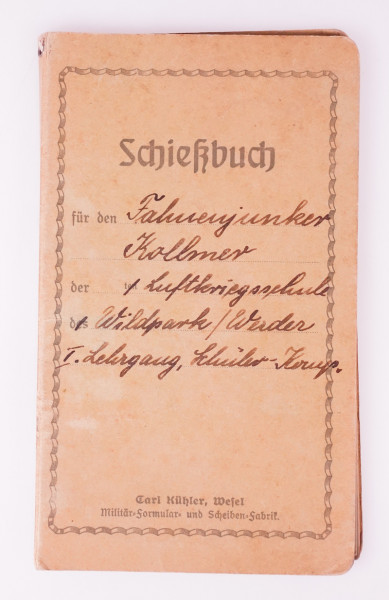 Schießbuch
für den Fahnenjunker
Kollmer
der Luftkriegsschule
des Wildpark/Werder
I. Lehrgang, Schüler-Komp.
Carl Kühler, Wesel
Militär-Formular- und Scheiben-Fabrik.